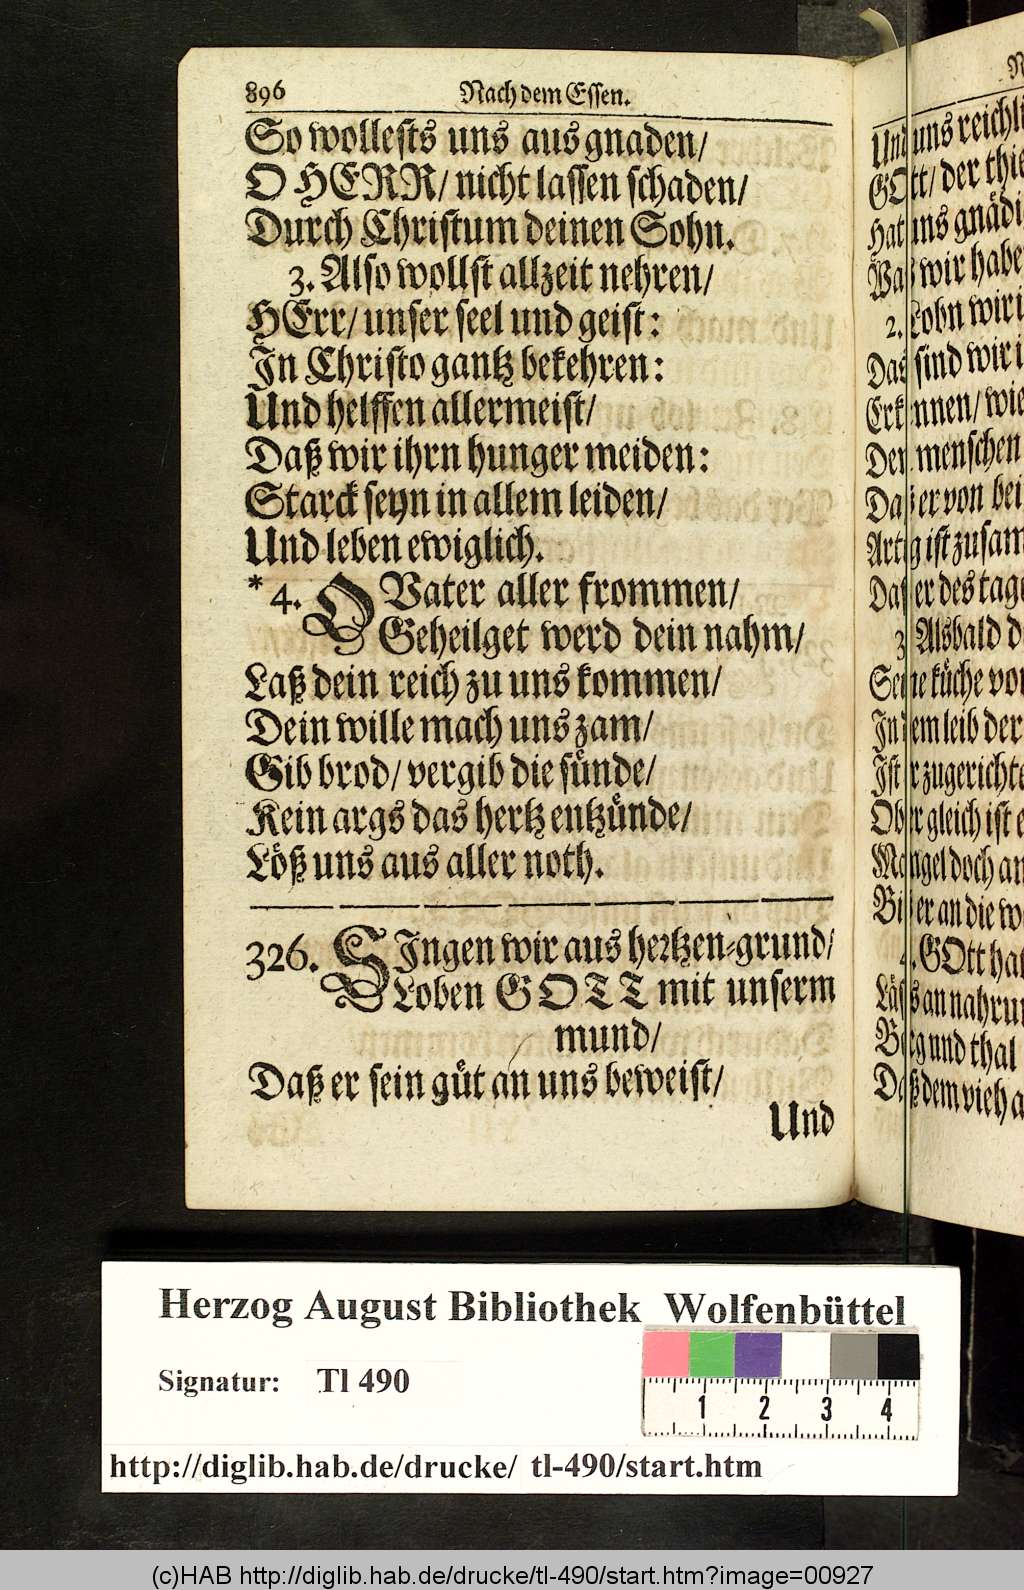 896 Nach dem Essen.
So wollests uns aus gnaden/
O HERR/ nicht lassen schaden/
Durch Christum deinen Sohn.
3. Also wollst allzeit nehren/
HErr/ unser seel und geist:
In Christo gantz bekehren:
Und helffen allermeist/
Daß wir ihrn hunger meiden:
Starck seyn in allem leiden/
Und leben ewiglich.
* 4. O Vater aller frommen/
Geheilget werd dein nahm/
Laß dein reich zu uns kommen/
Dein wille mach uns zam/
Gib brod/ vergib die sünde/
Kein args das hertz entzünde/
Löß uns aus aller noth.
326. SIngen wir aus hertzen-grund/
Loben GOTT mit unserm
mund/
Daß er sein güt an uns beweist/
Und
Und uns reichl
GOtt/ der thie
Hat uns gnädi
Waß wir habe
2. Lobn wir i
Das sind wir i
Erkennen/ wie
Den menschen
Daß er von bei
Artig ist zusam
Daß er des tage
3. Alsbald d
Seine küche vor
In dem leib der
Ist er zugericht
Ober gleich ist e
Mangel doch an
Biß er an die w
4. GOtt hat
Läß an nahrun
Berg und thal
Daß dem vieh a
Herzog August Bibliothek Wolfenbüttel
Signatur: Tl 490
1 2 3 4
http://diglib.hab.de/drucke/ tl-490/start.htm
(c)HAB http://diglib.hab.de/drucke/tl-490/start.htm?image=00927